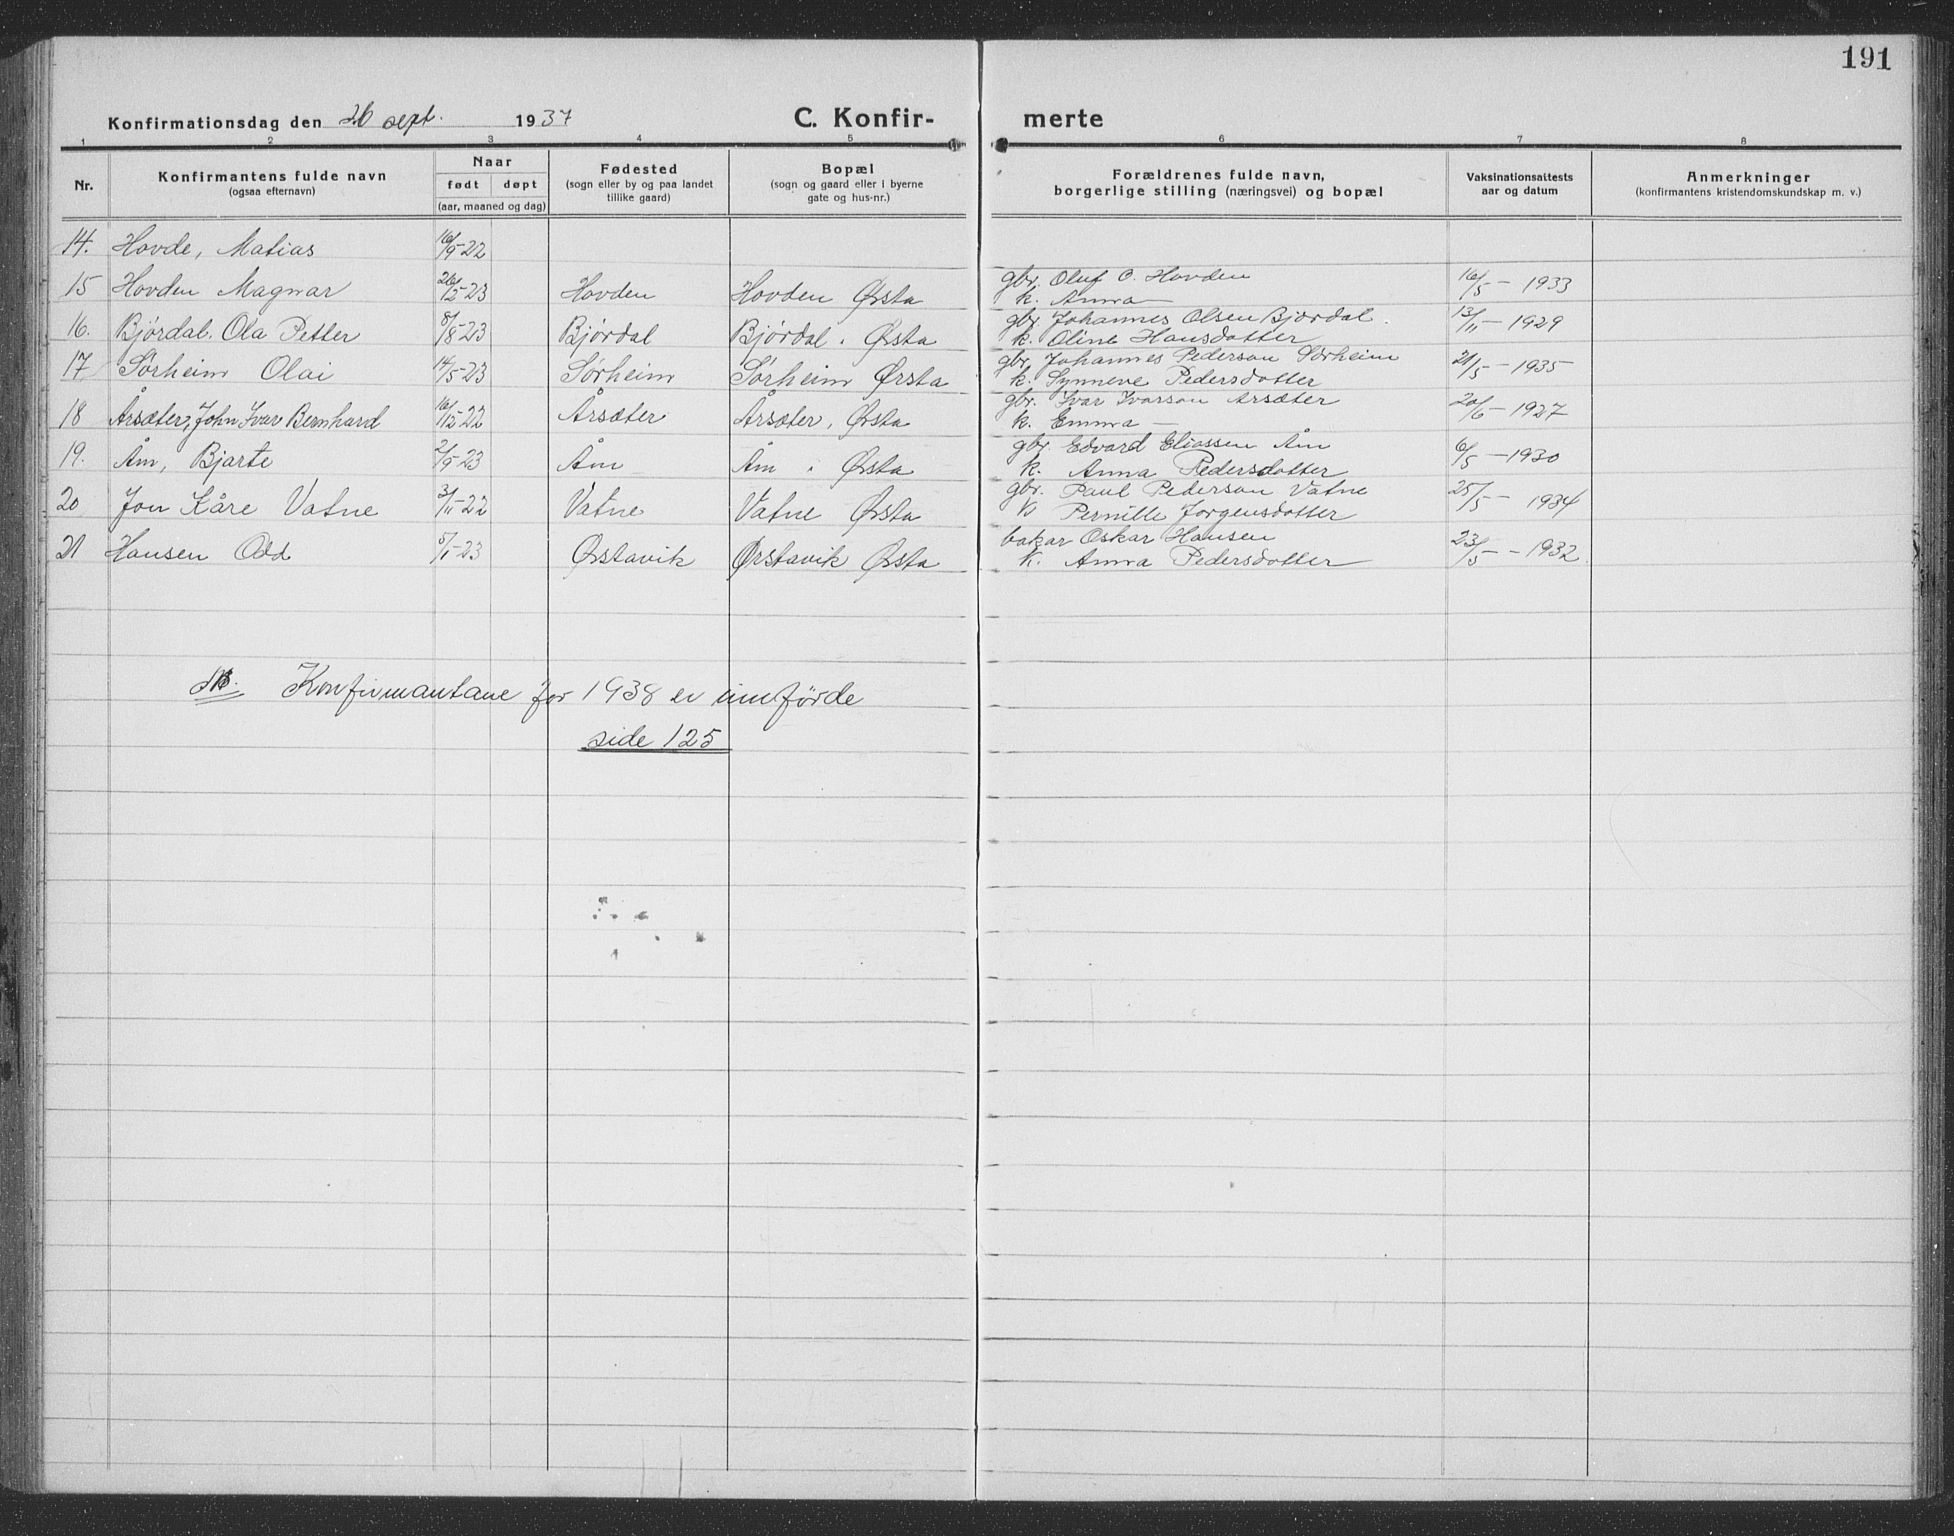 191
Konfirmationsdag den 26 sept. 1937 C. Konfirmerte
1 2 3 4 5 6 7 8
Nr. Konfirmantens fulde navn (ogsaa efternavn) Naar født døpt (aar, maaned og dag) Fødested (sogn eller by og paa landet tillike gaard) Bopæl (sogn og gaard eller i byerne gate og hus-nr.) Forældrenes fulde navn, borgerlige stilling (næringsvei) og bopæl Vaksinationsattests aar og datum Anmerkninger (konfirmantens kristendomskundskap m. v.)
14. Hovde, Matias 16/9-22
15 Hovden Magnar 26/2-23 Hovden Hovden Ørsta gbr. Oluf O. Hovden k. Anna — 16/5 - 1933
16. Bjørdal. Ola Petter 8/8-23 Bjørdal Bjørdal. Ørsta gbr. Johannes Olsen Bjørdal. k. Oline Hansdotter 13/11 - 1929
17 Sørheim Olai 14/5-23 Sørheim Sørheim Ørsta gbr. Johannes Pederson Sørheim k. Synneve Pedersdotter 21/5 - 1935
18 Årsæter, John Ivar Bernhard 16/12-22 Årsæter Årsæter, Ørsta gbr. Ivar Ivarson Arsæter k. Emma — 20/6 - 1927
19. Åm, Bjarte 2/9-23 Åm Åm. Ørsta gbr. Edvard Eliassen Åm k. Anna Pedersdotter 6/5 - 1930
20 Jon Kåre Vatne 3/11-22 Vatne Vatne Ørsta gbr. Paul Pederson Vatne k Pernille Jorgensdotter 25/5 - 1934
21 Hansen Odd 5/1-23 Ørstavik Ørstavik Ørsta bakar Oskar Hansen k. Anna Pedersdotter 23/5 - - 1932.
NB. Konfirmantane for 1938 er innførde
side 125